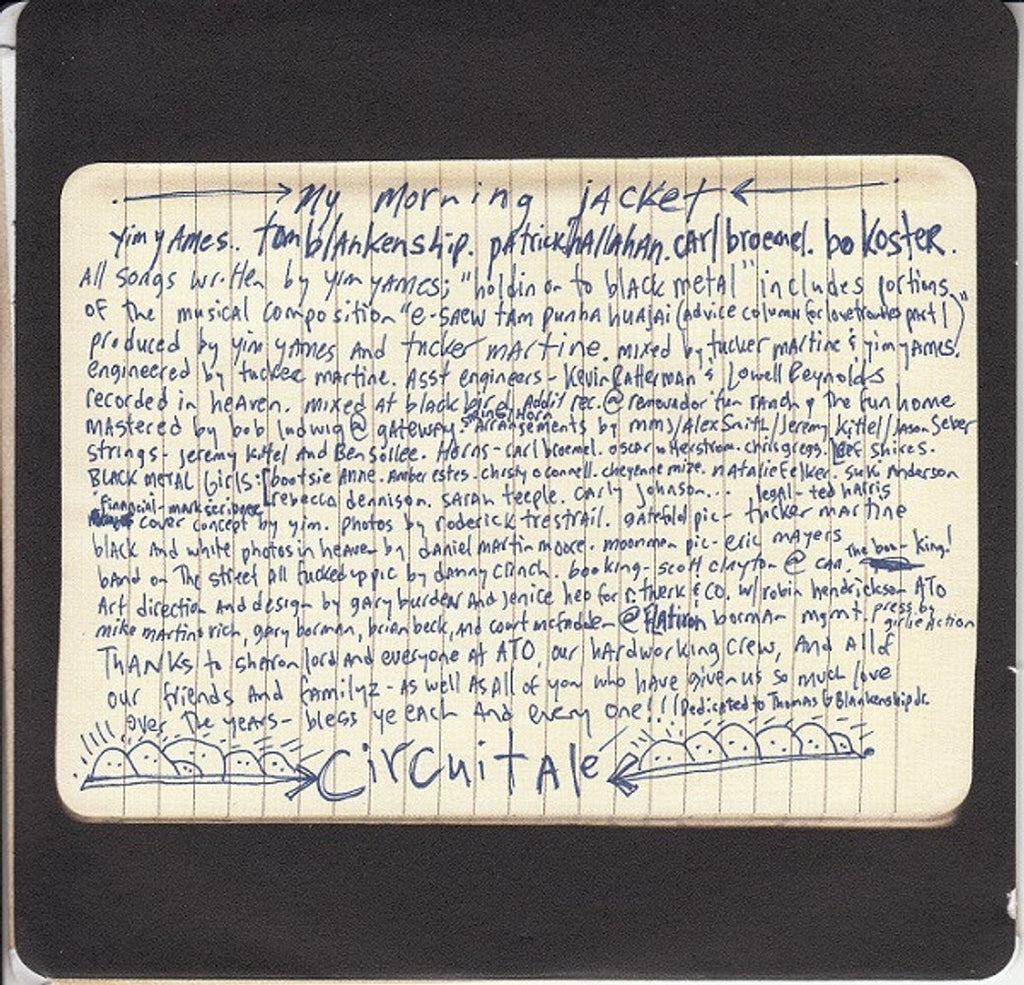 My morning jacket
yim yames. tom blankenship. patrick hallahan. carl broemel. bo koster.
All songs written by yim yames; "holdin on to black metal" includes portions
of the musical composition "e-saew tam punha huajai (advice column for love troubles part 1)"
produced by yim yames and tucker martine. mixed by tucker martine & yim yames.
engineered by tucker martine. Asst engineers - Kevin Ratterman & Lowell Reynolds
recorded in heaven. mixed at blackbird. Addit rec. @ removador fun ranch & the fun home
mastered by bob ludwig @ gateway. string/Horn Arrangements by mmj/Alex Smith/Jeremy Kittel/Jason Seber
strings - jeremy kittel and Ben Sollee. Horns - carl broemel. oscar utterstrom. chris gregg. Leif Shires.
BLACK METAL Girls: bootsie Anne. Amber estes. christy o connell. cheyenne mize. natalie felker. suki Anderson
rebecca dennison. sarah teeple. carly johnson... legal - ted harris
financial - mark scribner
cover concept by yim. photos by roderick trestrail. gatefold pic - tucker martine
black and white photos in heaven by daniel martin moore. moonman pic - eric mayers
band on the street all fucked up pic by danny clinch. booking - scott clayton @ caa. the boo- king!
Art direction and design by gary burden and jenice heo for r. twerk & co. w/ robin hendrickson ATO
mike martinovich, gary borman, brian beck, and court mcfadden @ Flatiron borman mgmt. press by girlie action
THANKS to sharon lord and everyone at ATO, our hardworking crew, and all of
our friends and familyz - as well as all of you who have given us so much love
over the years - bless ye each and every one!!! Dedicated to Thomas G Blankenship Jr.
CircuitAle